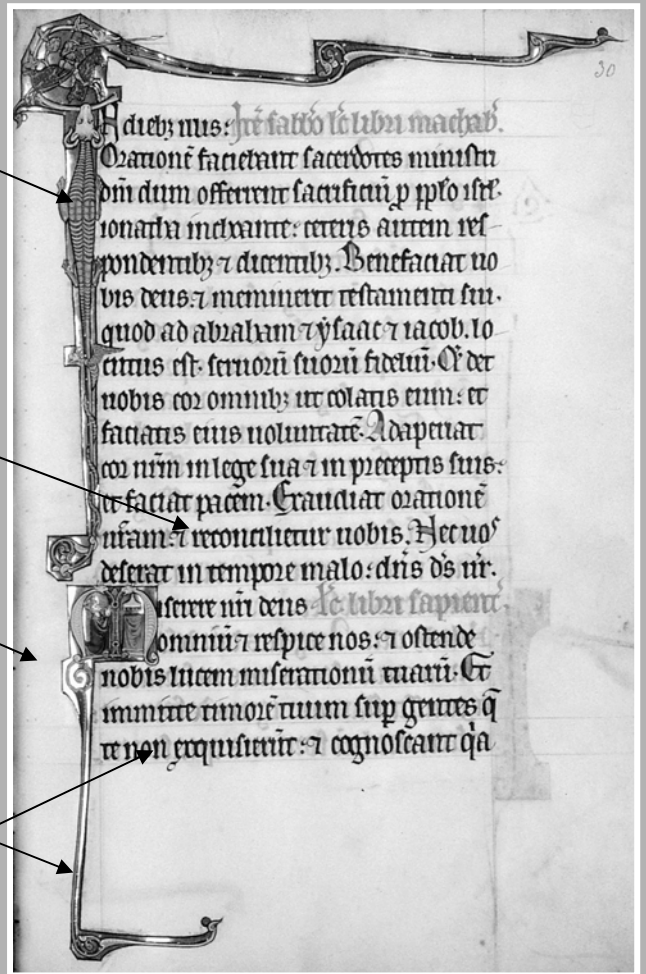 30
N diebꝫ illis: Itē sabb̄o lc̄ libri machab̄.
Orationē faciebant sacerdotes ministri
dn̄i dum offerrent sacrificiū ꝑ pp̄lo isrl̄.
ionatha inchoante: ceteris autem res-
pondentibꝫ ⁊ dicentibꝫ. Benefaciat uo
bis deus: ⁊ meminerit testamenti sui.
quod ad abraham ⁊ ysaac ⁊ iacob. lo
cutus est. seruorū suorū fideliū. Et det
uobis cor omnibꝫ ut colatis eum: et
faciatis eius uoluntatē. Adaperiat
cor ur̄m in lege sua ⁊ in preceptis suis:
et faciat pacem. Exaudiat orationē
ur̄am: ⁊ reconcilietur uobis. Nec uos
deserat in tempore malo: dn̄s ds̄ ur̄.
Miserere nr̄i deus Lc̄ libri sapient̄.
omniū ⁊ respice nos: ⁊ ostende
nobis lucem miserationū tuarū. Et
immitte timorē tuum suꝑ gentes q̄
te non exquisierūt: ⁊ cognoscant q̇a